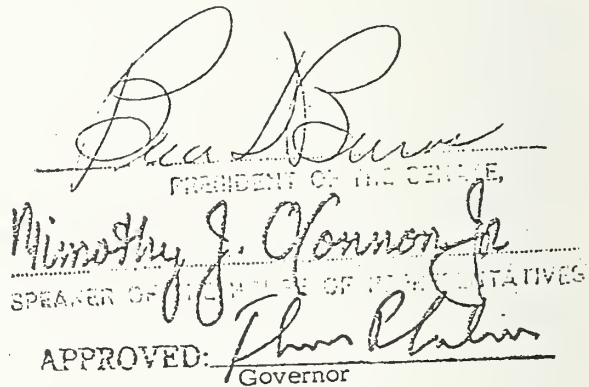 Burns
PRESIDENT OF THE SENATE,
Timothy J. O'Connor Jr
SPEAKER OF THE HOUSE OF REPRESENTATIVES
APPROVED:
Governor